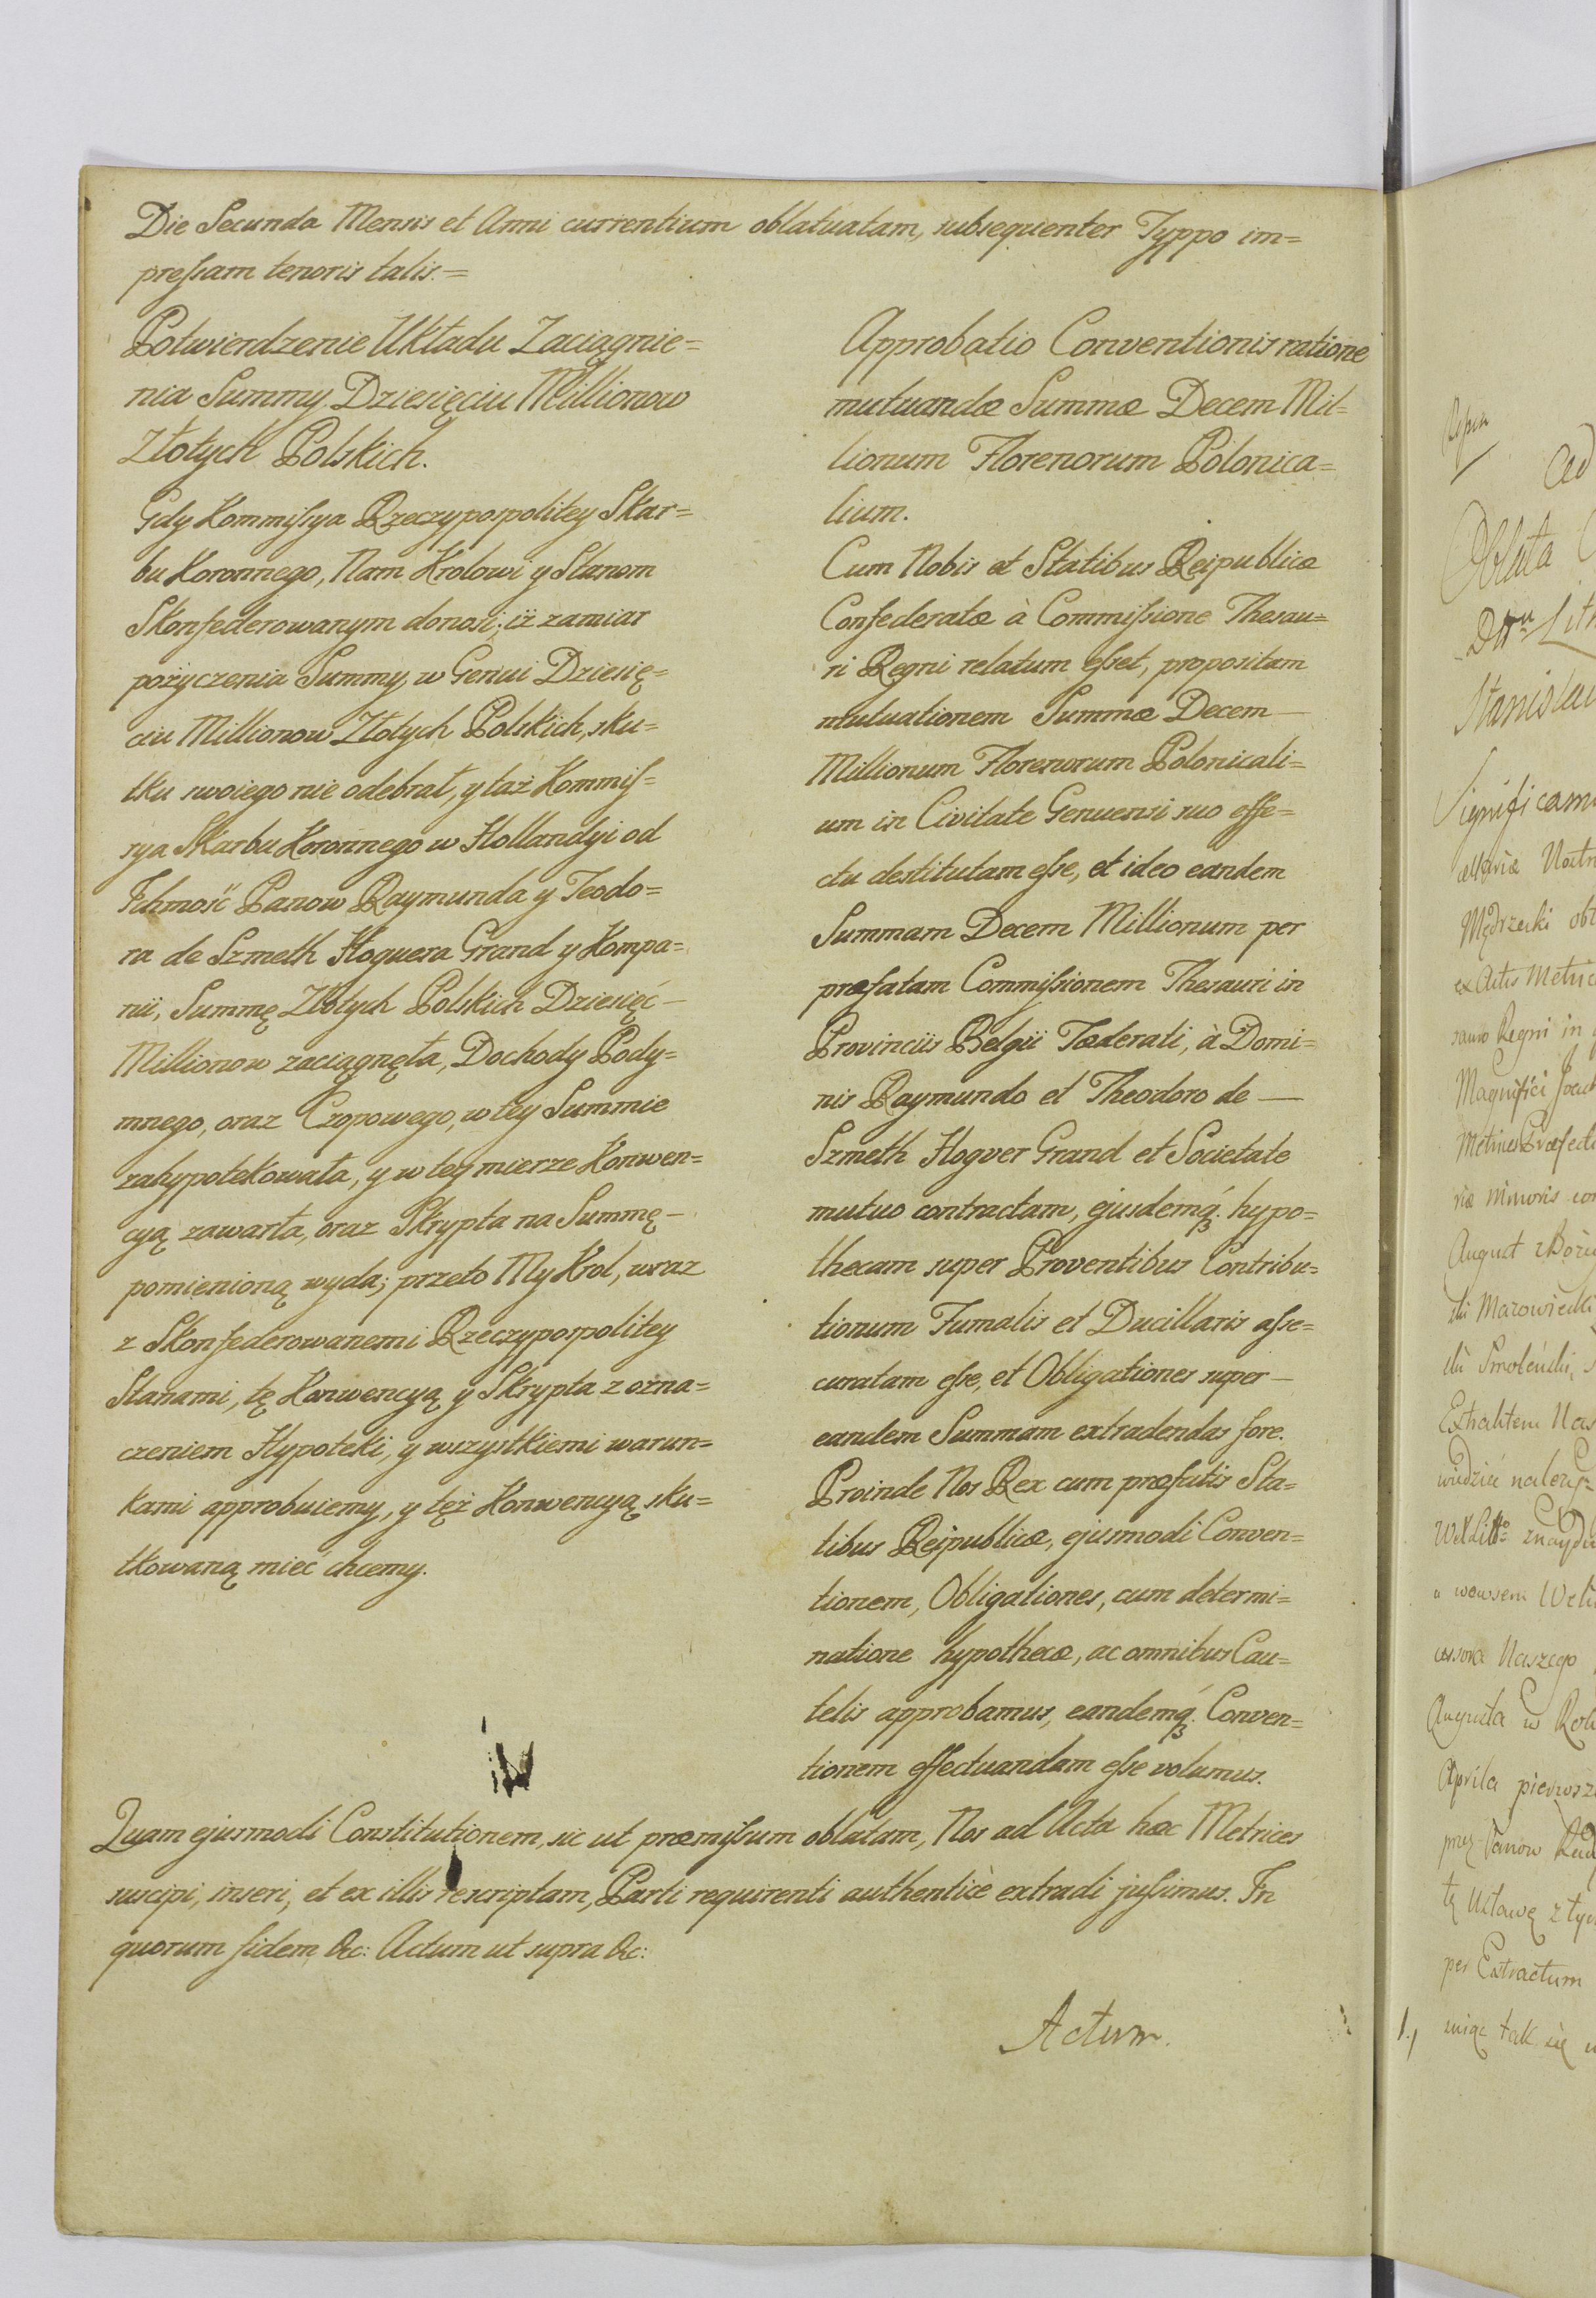 Die Secunda Mensis et Anni currentium oblatuatam, subsequenter Typpo im=
preſsam tenoris talis.=
Potwierdzenie Układu Zaciągnie=
nia Summy Dziesięciu Millionow
Złotych Polskich.
Gdy Kommiſsya Rzeczypospolitey Skar=
bu Koronnego, Nam Krolowi y Stanom
Skonfederowanym donosi; iż zamiar
pożyczenia Summy, w Genui Dziesię=
ciu Millionow Złotych Polskich, sku=
tku swoiego nie odebrał, y taż Kommiſ=
sya Skarbu Koronnego w Hollandyi od
Ichmość Panow Raymunda y Teodo=
ra de Szmeth Hoguera Grand y Kompa=
nii, Summę Złotych Polskich Dziesięć —
Millionow zaciągnęła, Dochody Pody=
mnego, oraz Czopowego, w tey Summie
zahypotekowała, y w tey mierze Konwen=
cyą zawarła, oraz Skrypta na Summę —
pomienioną wyda; przeto My Krol, wraz
z Skonfederowanemi Rzeczypospolitey
Stanami, tę Konwencyą y Skrypta z ozna=
czeniem Hypoteki, y wszystkiemi warun=
kami approbuiemy, y tęż Konwencyą sku=
tkowaną mieć chcemy.
Approbatio Conventionis ratione
mutuandæ Summæ Decem Mil=
lionum Florenorum Polonica=
lium.
Cum Nobis et Statibus Reipublicæ
Confederatæ à Commiſsione Thesau=
ri Regni relatum eſset, propositam
mutuationem Summæ Decem —
Millionum Florenorum Polonicali=
um in Civitate Genuensi suo effe=
ctu destitutam eſse, et ideo eandem
Summam Decem Millionum per
præfatam Commiſsionem Thesauri in
Provinciis Belgii Fœderati, à Domi=
nis Raymundo et Theodoro de —
Szmeth Hogver Grand et Societate
mutuo contractam, ejusdemq́ꝫ. hypo=
thecam super Proventibus Contribu=
tionum Fumalis et Ducillaris aſse=
curatam eſse, et Obligationes super —
eandem Summam extradendas fore.
Proinde Nos Rex cum præfatis Sta=
tibus Reipublicæ, ejusmodi Conven=
tionem, Obligationes, cum determi=
natione hypothecæ, ac omnibus Cau=
telis approbamus, eandemq́ꝫ. Conven=
tionem effectuandam eſse volumus.
Quam ejusmodi Constitutionem, sic ut præmiſsum oblatam, Nos ad Acta hæc Metrices
suscipi, inseri, et ex illis rescriptam, Parti requirenti authenticè extradi juſsimus. In
quorum fidem &c: Actum ut supra &c:
Actum.
Ad
Oblata
Stanislau
Significam
Mędrzecki obl
ex Actis Metric
Regni in
Magnifici Jacob
ria minoris con
August z Boży
Smoleński,
Extraktem Nas
wiedzieć należy
Naszego
Augusta w Rok
Aprila pierwsz
przez Panow
tę Ustawę z tym
per Extractum
1., tak się